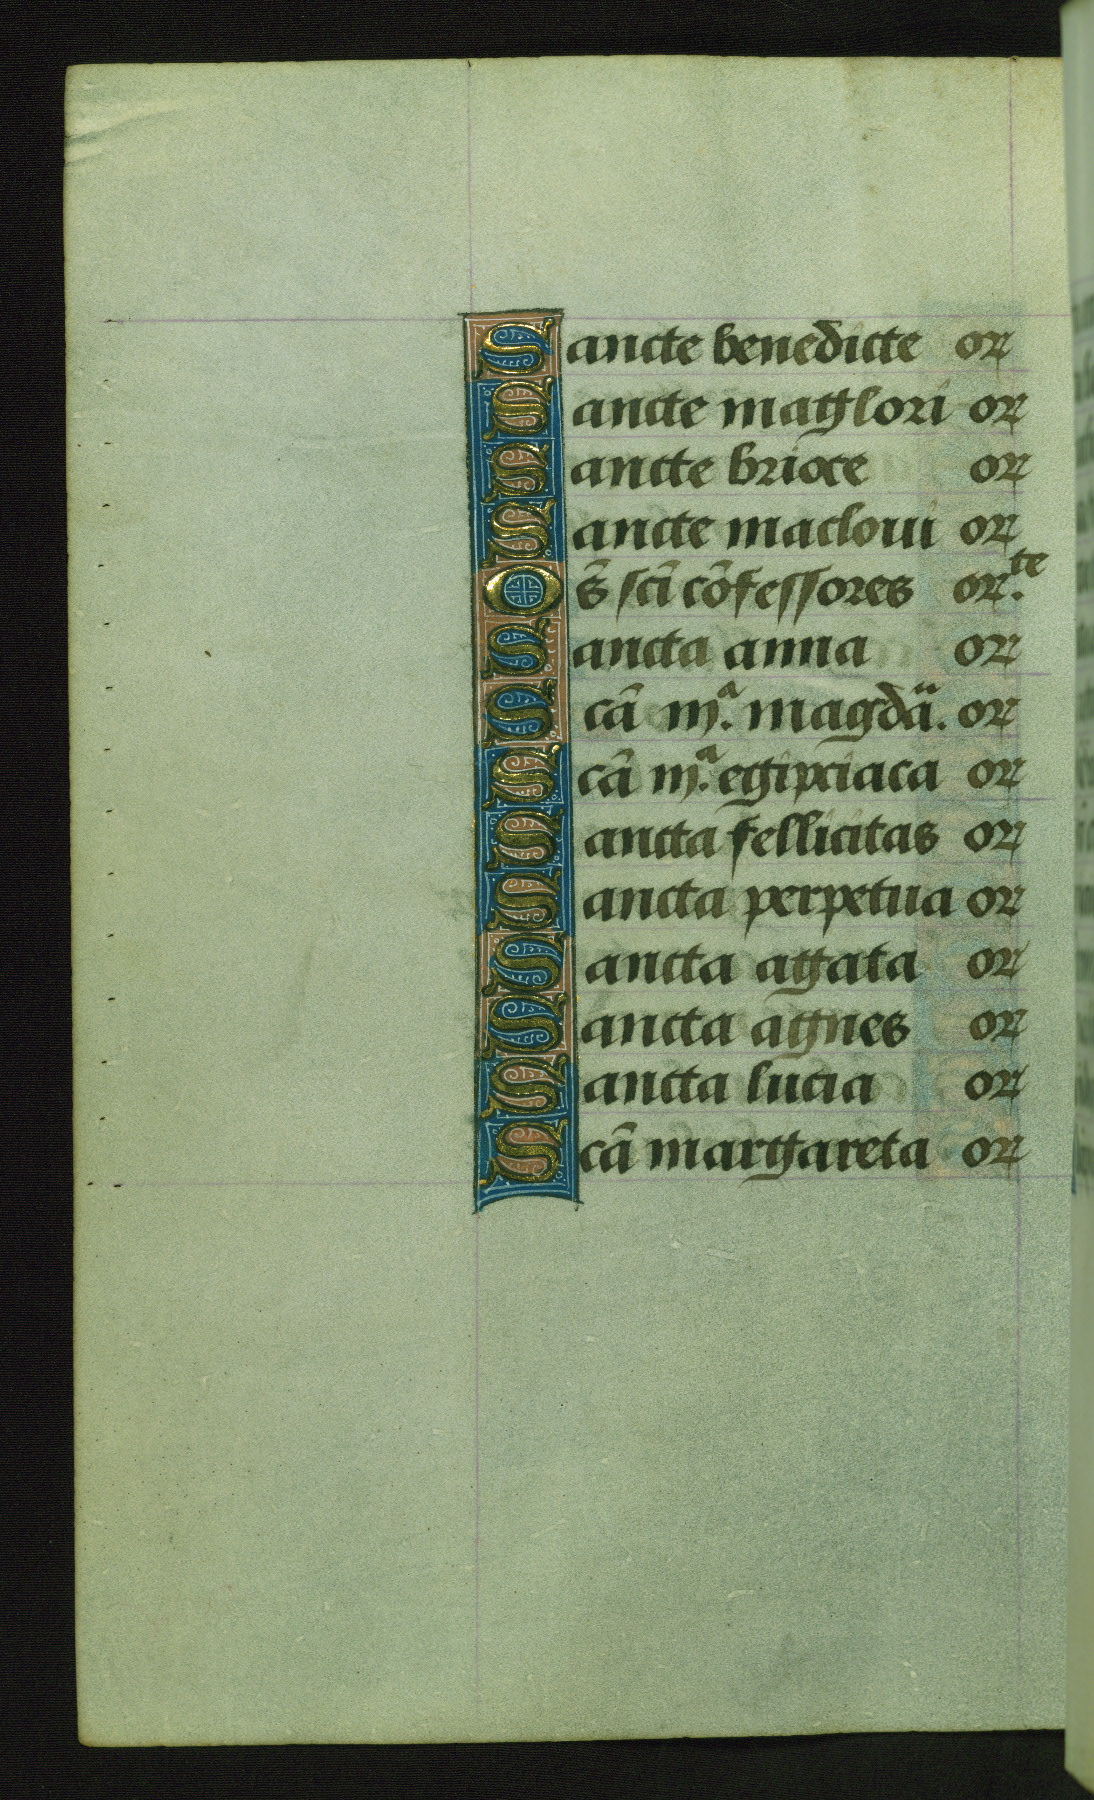 Sancte benedicte or
Sancte maglori or
Sancte brioce or
Sancte maclovii or
Oẽs sc̃i cõfessores or.te
Sancta anna or
Sc̃a m.a magdã. or
Sc̃a m.a egipciaca or
Sancta fellicitas or
Sancta perpetua or
Sancta agata or
Sancta agnes or
Sancta lucia or
Sc̃a margareta or